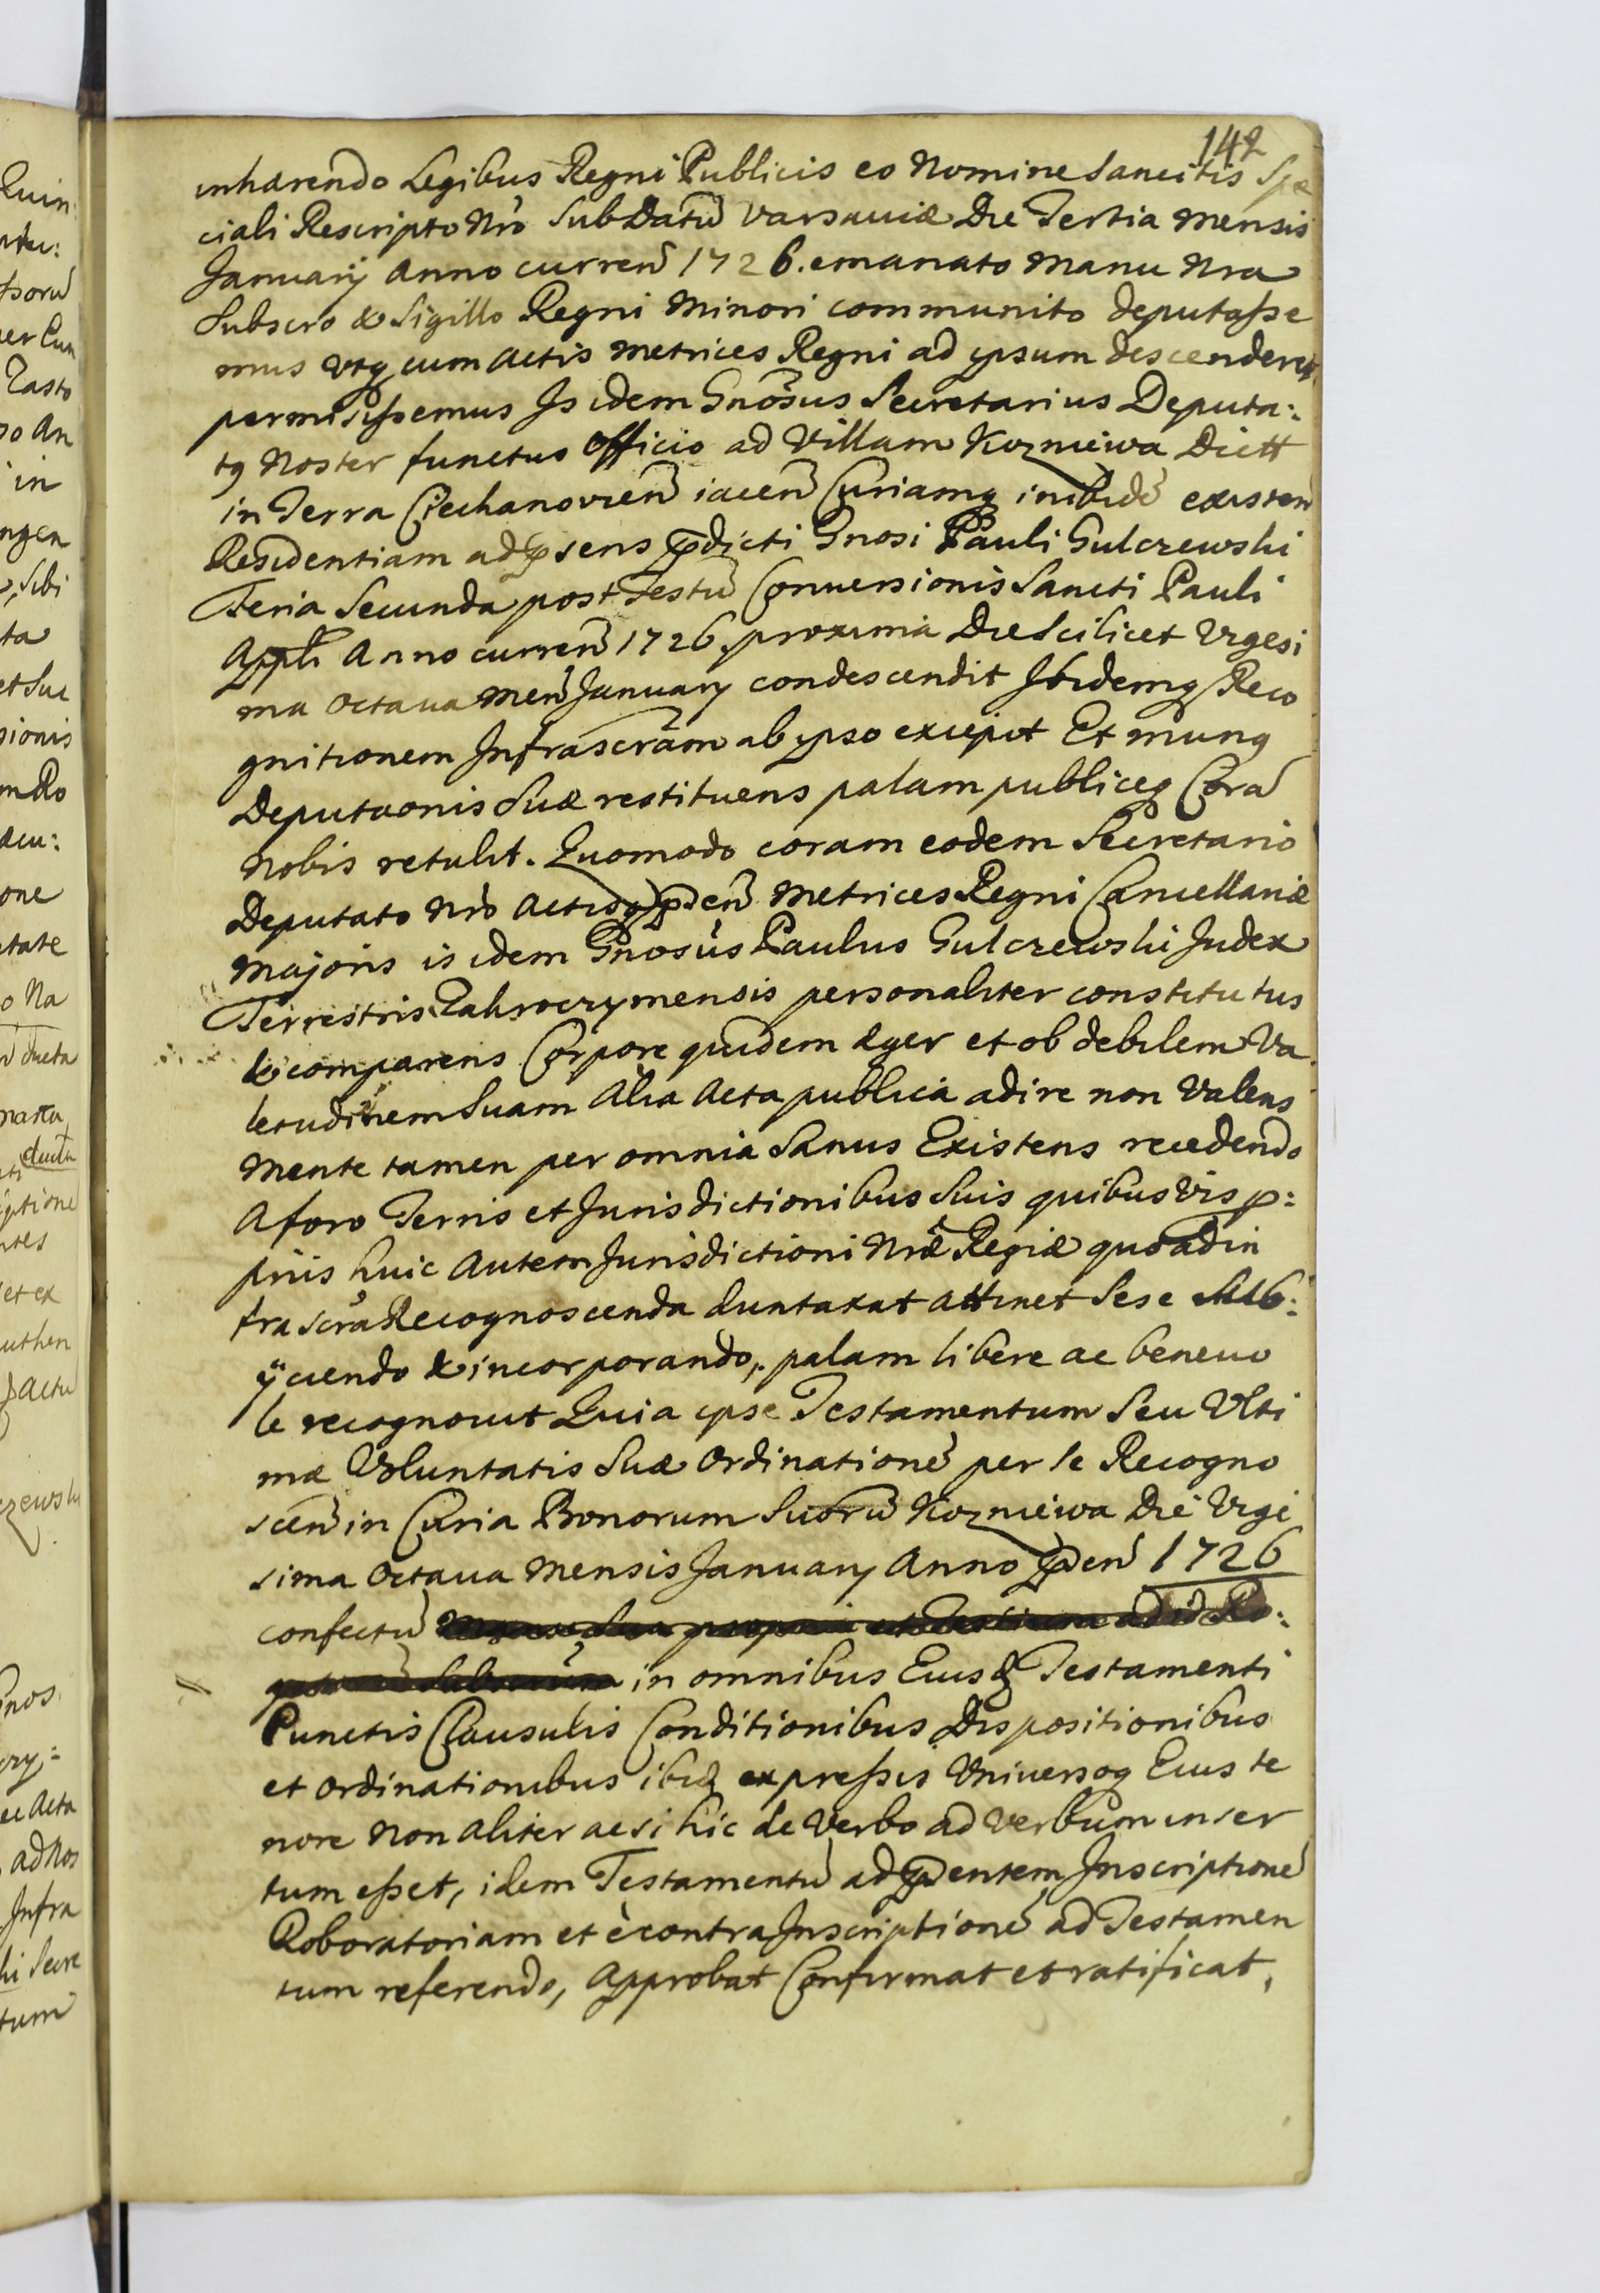 142
inhærendo Legibus Regni Publicis eo Nomine Sancitis Spe
ciali Rescripto Nro Sub Datũ Varsaviæ Die Tertia Mensis
Januarij Anno curreñ 1726. emanato Manu Nra
Subscro & Sigillo Regni Minori communito deputasse
mus Vtq cum Actis Metrices Regni ad ipsum descenderet
permisissemus Is idem Gnosus Secretarius Deputa:
tq Noster functus Officio ad Villam Kozniewa Dictt
in Terra Ciechanovieñ iaceñ Curiamq inibidẽ existeñ
Residentiam ad psens pdicti Gnosi Pauli Gulczewski
Feria Secunda post Festũ Conversionis Sancti Pauli
Appli Anno curreñ 1726 proxima Die Scilicet Vigesi
ma Octava Meñ January condescendit Ibidemq Reco
gnitionem Infrascrãm ab ipso excepit Et munq
Deputaonis Suæ restituens palam publiceq Corã
Nobis retulit. Quomodo coram eodem Secretario
Deputato Nro Actisq pñeñ Metrices Regni Cancellariæ
Majoris is idem Gnosus Paulus Gulczewski Judex
Terrestris Zakroczymensis personaliter constitutus
& comparens Corpore quidem æger et ob debilem Va
letudinem Suam Alia Acta publica adire non Valens
Mente tamen per omnia Sanus Existens recedendo
A foro Terris et Jurisdictionibus Suis quibusvis p:
priis huic Autem Jurisdictioni Nræ Regiæ quoad in
fra scra Recognoscenda duntaxat attinet Sese Sub:
ÿciendo & incorporando, palam libere ac benevo
le recognovit Quia ipse Testamentum Seu Vlti
mæ Voluntatis Suæ Ordinationẽ per Se Recogno
sceñ in Curia Bonorum Suorũ Kozniewa Die Vige
sima Octava Mensis January Anno pñeñ 1726
confectũ
in omnibus Eiusd Testamenti
Punctis Clausulis Conditionibus Dispositionibus
et Ordinationibus ibid expressis Vniversoq Eius te
nore Non Aliter ac si hic de Verbo ad Verbum inser
tum esset, idem Testamentũ ad pñentem Inscriptionẽ
Roboratoriam et è contra Inscriptionẽ ad Testamen
tum referendo, Approbat Confirmat et ratificat,